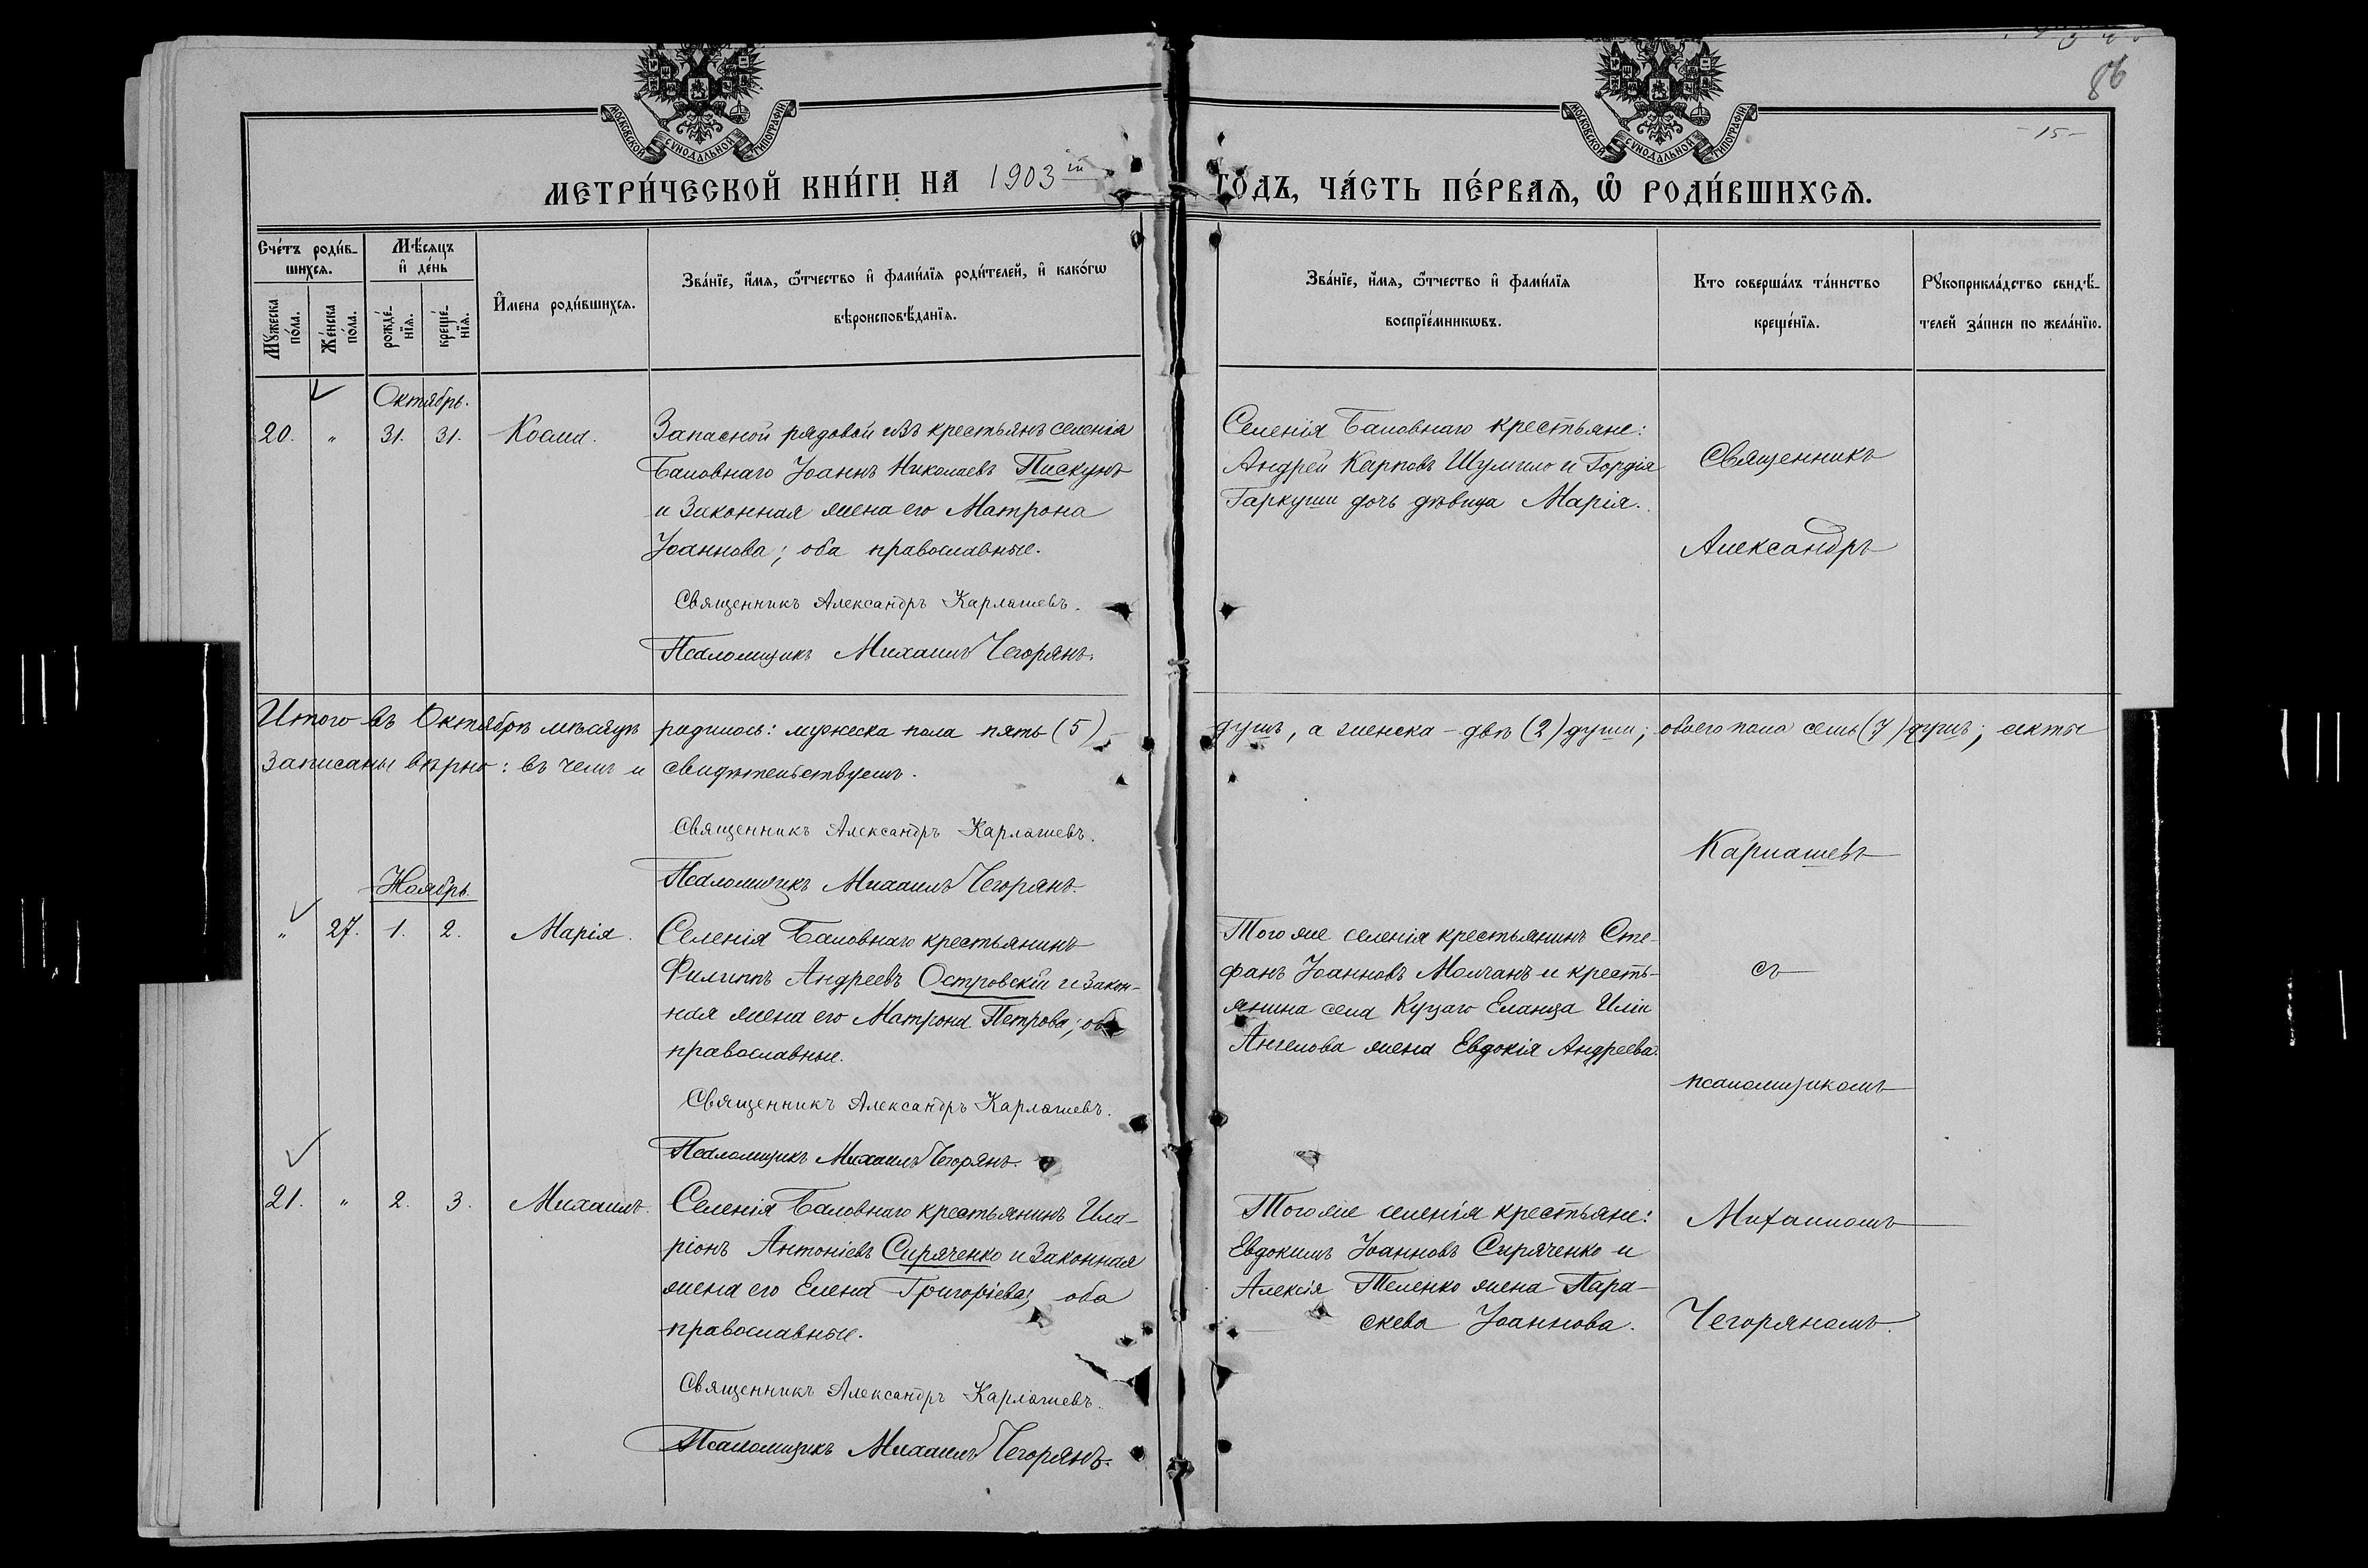 86
-15-
МОСКОВСКОЙ СѴНОДАЛЬНОЙ ТИПОГРАФІИ
МОСКОВСКОЙ СѴНОДАЛЬНОЙ ТИПОГРАФІИ
МЕТРИ́ЧЕСКОЙ КНИ́ГИ НА 1903 й ГО́ДЪ, ЧА́СТЬ ПЕ́РВАѦ, Ѽ РОДИ́ВШИХСѦ.
Сче́тъ роди́в-
шихсѧ.
Мꙋ́жеска по́ла.
Же́нска по́ла.
Мѣ́сѧцъ
и҆ де́нь
рожде́-
нїѧ.
креще́-
нїѧ.
И҆мена роди́вшихсѧ.
Зва́нїе, и҆́мѧ, ѻ҆́тчество и҆ фами́лїѧ роди́телей, и҆ како́гѡ
вѣроисповѣ́данїѧ.
Зва́нїе, и҆́мѧ, ѻ҆́тчество и҆ фами́лїѧ
воспрїе́мникѡвъ.
Кто соверша́лъ та́инство
креще́нїѧ.
Рꙋкоприкла́дство свидѣ́-
телей за́писи по жела́нїю.
Октябрь.
20. " 31. 31. Косма.
Запасной рядовой изъ крестьянъ селенія
Баловнаго Іоаннъ Николаевъ Пискунъ
и законная жена его Матрона
Іоаннова; оба православные.
Священникъ Александръ Карлашевъ.
Псаломщикъ Михаилъ Чегорянъ.
Селенія Баловнаго крестьяне:
Андрей Карповъ Шумило и Гордія
Гаркуши дочь дѣвица Марія.
Священникъ
Александръ
Итого въ Октябрѣ мѣсяцѣ родилось: мужеска пола пять (5) душъ, а женска - двѣ (2) души; обоего пола семь (7) душъ; акты
записаны вѣрно: въ чемъ и свидѣтельствуемъ.
Священникъ Александръ Карлашевъ.
Псаломщикъ Михаилъ Чегорянъ.
Карлашевъ
Ноябрь
" 27. 1. 2. Марія.
Селенія Баловнаго крестьянинъ
Филиппъ Андреевъ Островскій и закон-
ная жена его Матрона Петрова; оба
православные.
Священникъ Александръ Карлашевъ.
Псаломщикъ Михаилъ Чегорянъ.
Того же селенія крестьянинъ Сте-
фанъ Іоанновъ Молчанъ и кресть-
янина села Куцаго Еланца Иліи
Ангелова жена Евдокія Андреева.
съ
псаломщикомъ
21. " 2. 3. Михаилъ.
Селенія Баловнаго крестьянинъ Ила-
ріонъ Антоніевъ Сиряченко и законная
жена его Елена Григоріева; оба
православные.
Священникъ Александръ Карлашевъ.
Псаломщикъ Михаилъ Чегорянъ.
Того же селенія крестьяне:
Евдокимъ Іоанновъ Сиряченко и
Алексія Теленко жена Пара-
скева Іоаннова.
Михаиломъ
Чегоряномъ.